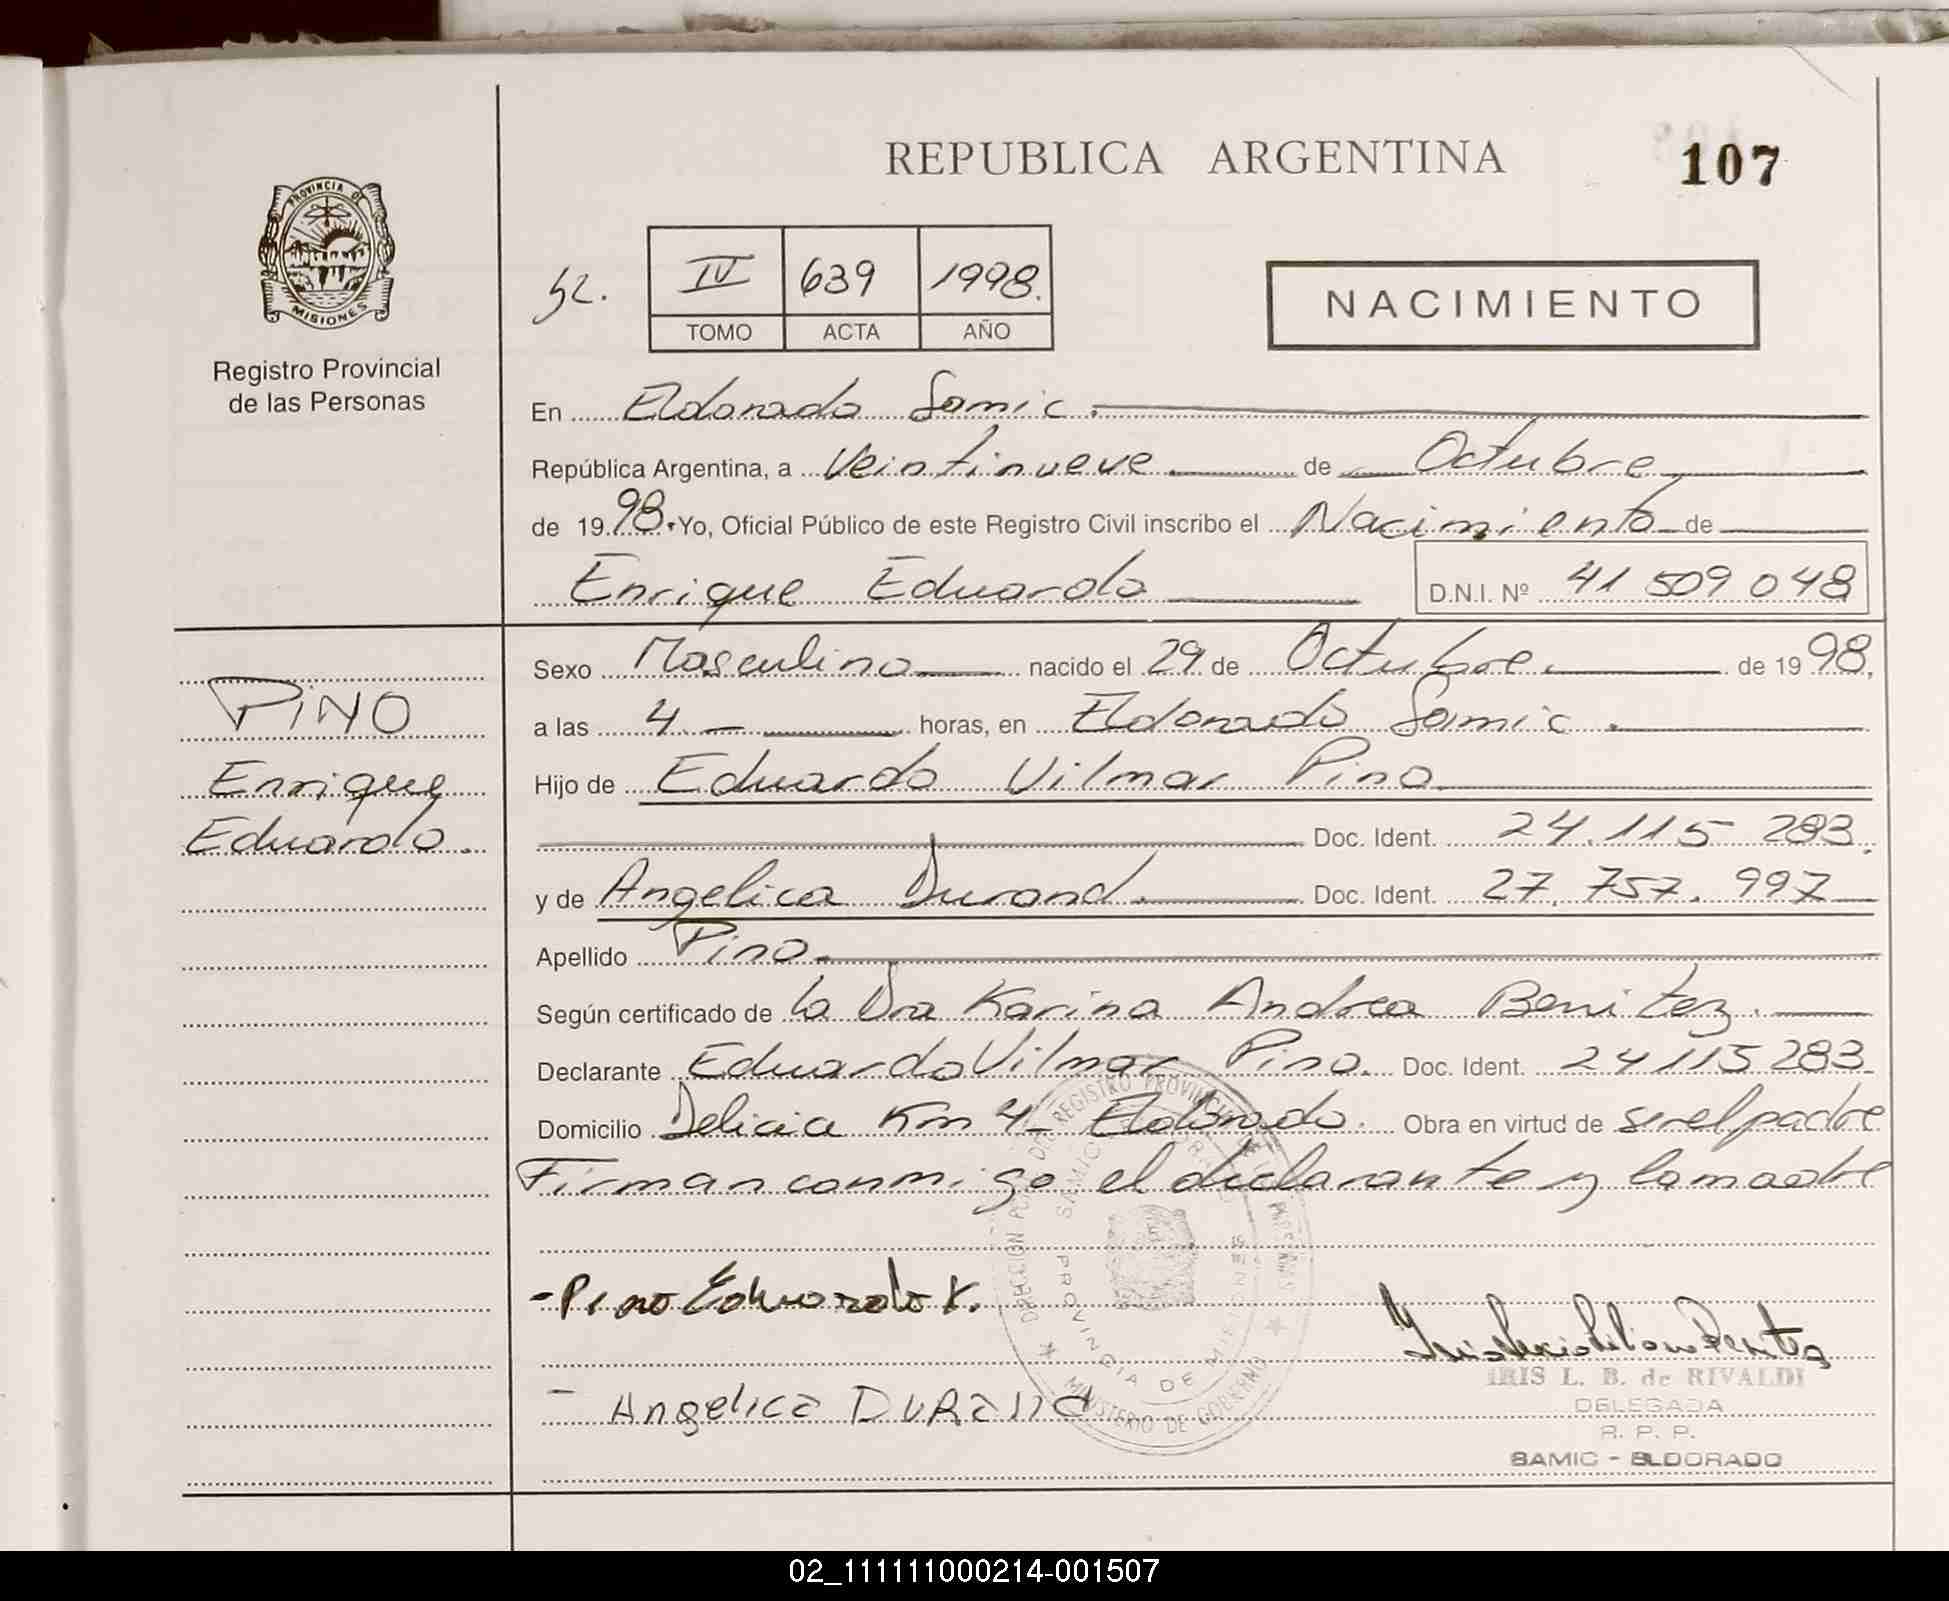 REPUBLICA ARGENTINA
107
PROVINCIA DE
MISIONES
Registro Provincial
de las Personas
IV 639 1998.
TOMO ACTA AÑO
NACIMIENTO
En Eldorado Samic.
República Argentina, a Veintinueve de Octubre
de 1998. Yo, Oficial Público de este Registro Civil inscribo el Nacimiento de
Enrique Eduardo D.N.I. Nº 41 509 048
PINO
Enrique
Eduardo.
Sexo Masculino nacido el 29 de Octubre. de 1998,
a las 4 horas, en Eldorado Samic.
Hijo de Eduardo Vilmar Pino
Doc. Ident. 24.115 283.
y de Angelica Durand. Doc. Ident. 27.757.997
Apellido Pino.
Según certificado de la Dra Karina Andrea Benitez.
Declarante Eduardo Vilmar Pino. Doc. Ident. 24115283.
Domicilio Delicia Km 4_ Eldorado. Obra en virtud de ser el padre
Firman conmigo el declarante y la madre
-Pino Eduardo V.
- Angelica DURAnd
PROVINCIA DE MISIONES
MINISTERIO DE GOBIERNO
IRIS L. B. de RIVALDI
DELEGADA
R. P. P.
SAMIC - ELDORADO
02_111111000214-001507